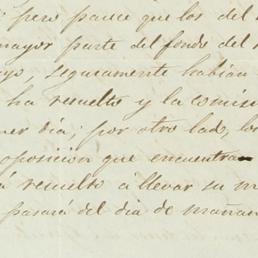 pero parece que los del
mayor parte del fondo del
yo, seguramente habian
ha resuelto y la comisi
mer dia; por otro lado, los
oposicion que encuentra
á resuelto á llevar su m
pasará del dia de mañan